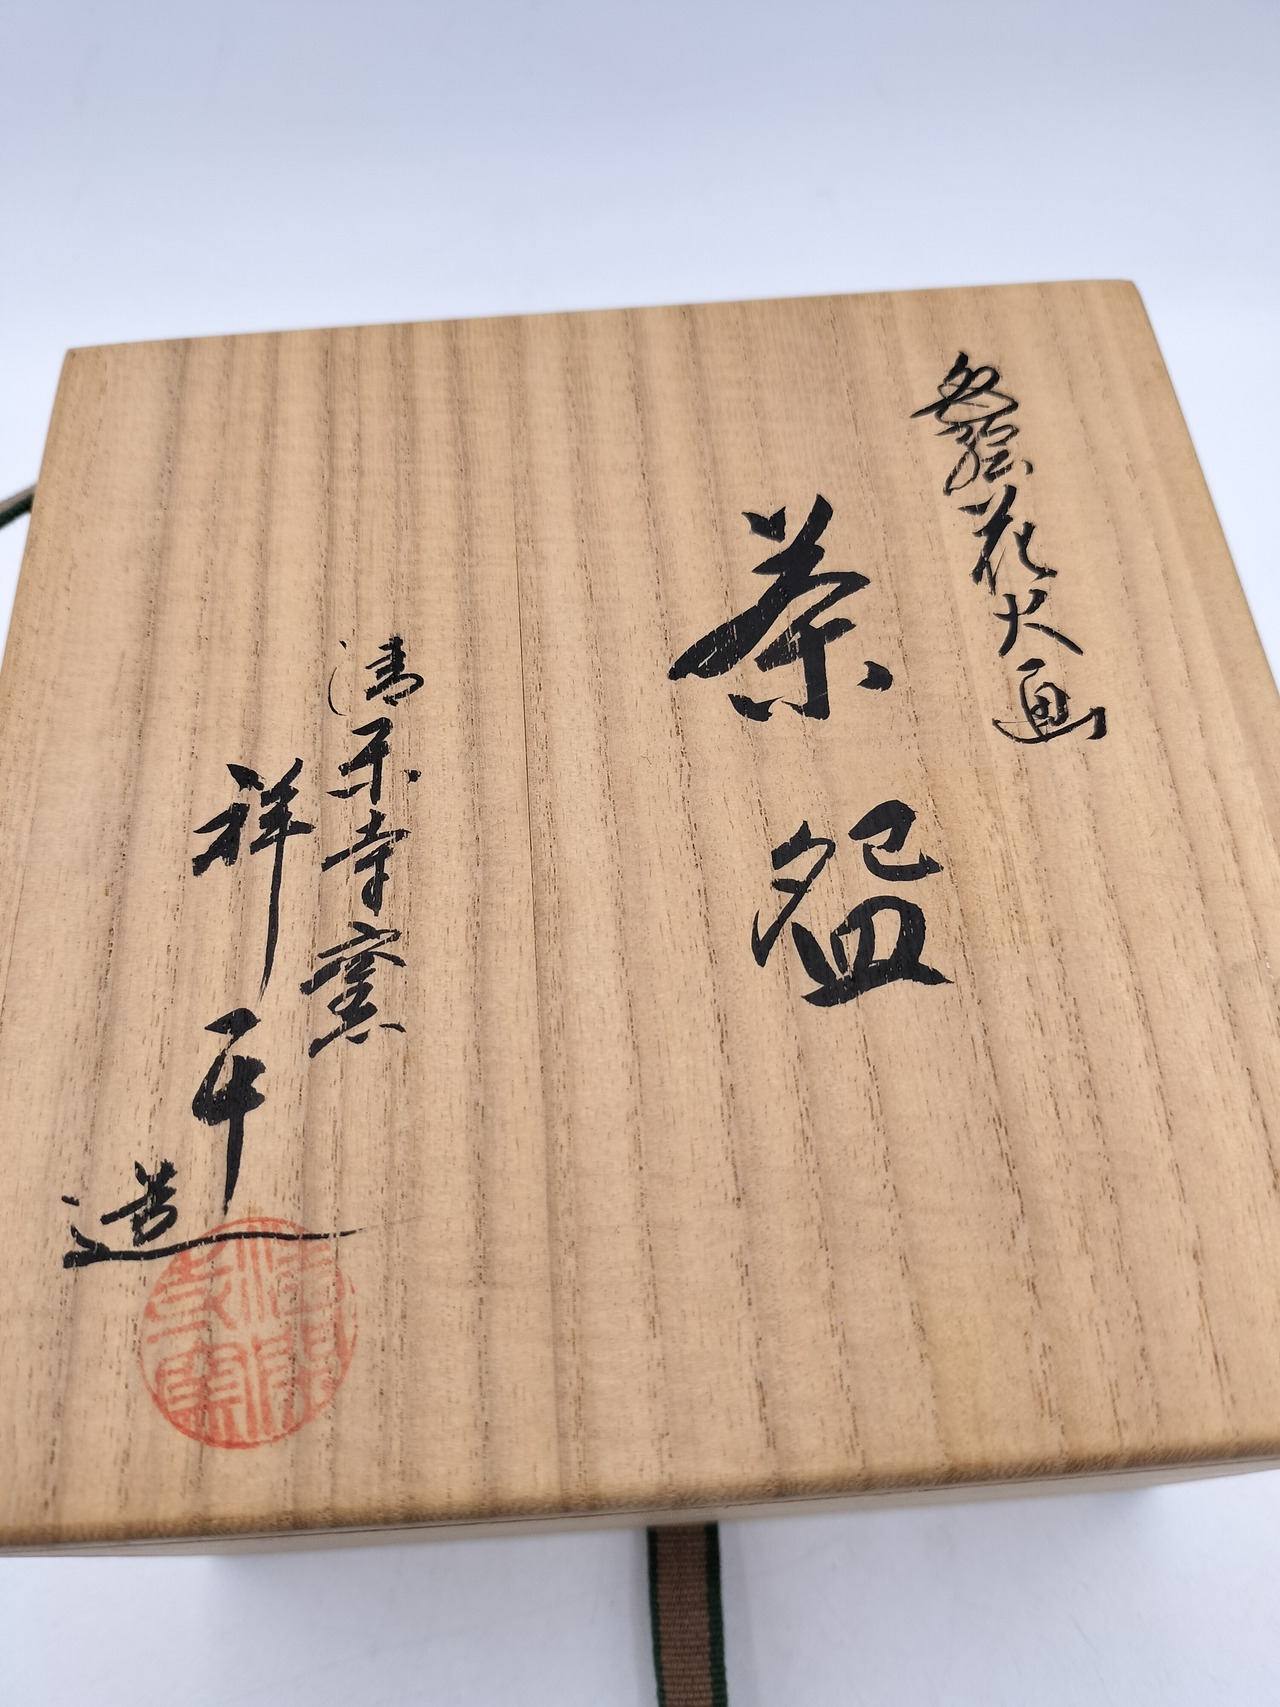 色絵花火画
茶盌
清閑寺窯
祥平造